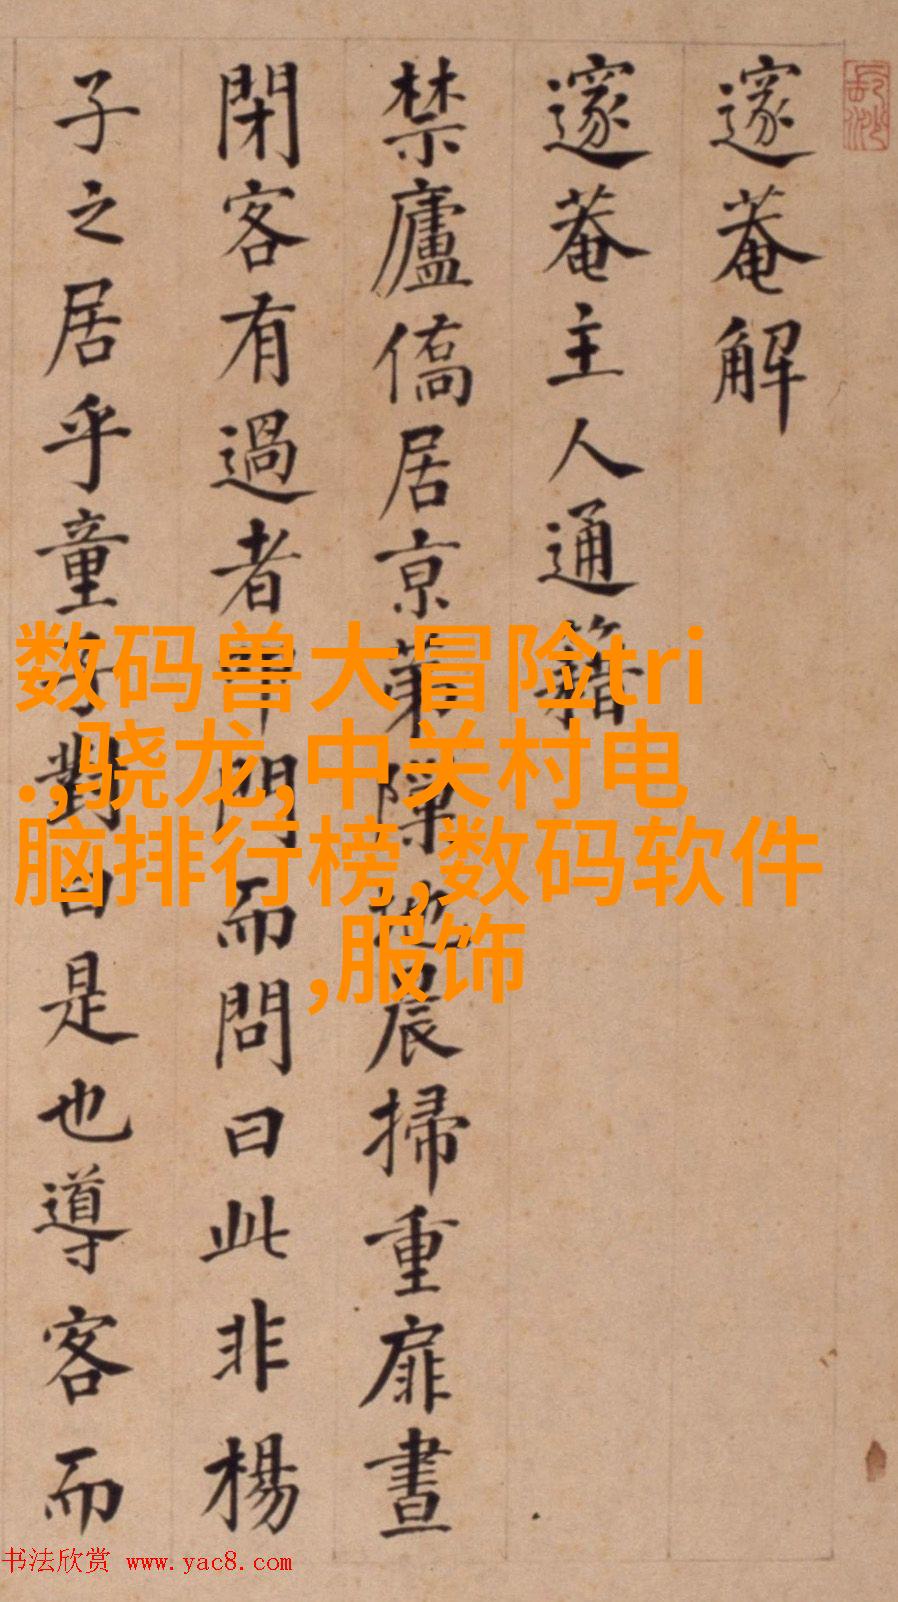 邃菴解
邃菴主人通籍
禁廬僑居京第隙地晨掃重扉晝
閉客有過者叩門而問曰此非楊
子之居乎童子對曰是也導客而
数码兽大冒险tri
.,骁龙,中关村电
脑排行榜,数码软件
,服饰
书法欣赏 www.yac8.com